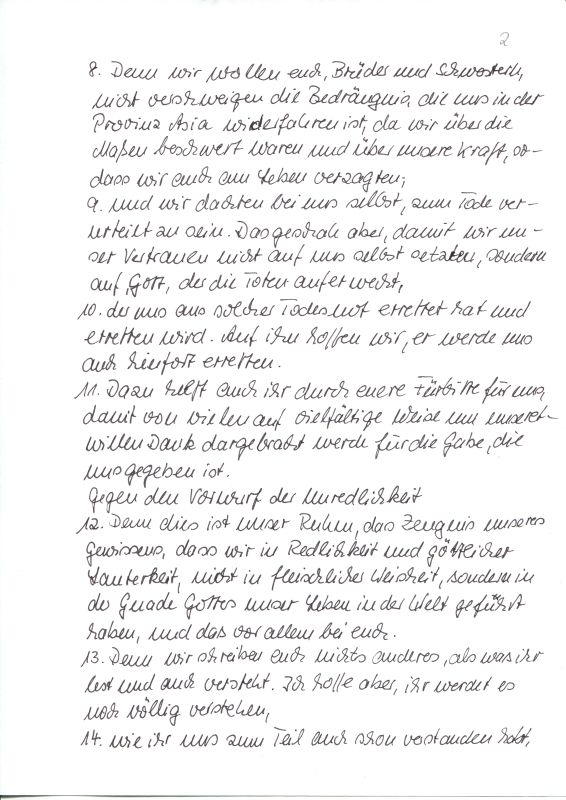 2
8. Denn wir wollen euch, Brüder und Schwestern,
nicht verschweigen die Bedrängnis, die uns in der
Provinz Asia widerfahren ist, da wir über die
Maßen beschwert waren und über unsere Kraft, so-
dass wir auch am Leben verzagten;
9. und wir dachten bei uns selbst, zum Tode ver-
urteilt zu sein. Das geschah aber, damit wir un-
ser Vertrauen nicht auf uns selbst setzten, sondern
auf Gott, der die Toten auferweckt,
10. der uns aus solcher Todesnot errettet hat und
erretten wird. Auf ihn hoffen wir, er werde uns
auch hinfort erretten.
11. Dazu helft auch ihr durch euere Fürbitte für uns,
damit von vielen auf vielfältige Weise um unseret-
willen Dank dargebracht werde für die Gabe, die
uns gegeben ist.
Gegen den Vorwurf der Unredlichkeit
12. Denn dies ist unser Ruhm, das Zeugnis unseres
Gewissens, dass wir in Redlichkeit und göttlicher
Lauterkeit, nicht in fleischlicher Weisheit, sondern in
der Gnade Gottes unser Leben in der Welt geführt
haben, und das vor allem bei euch.
13. Denn wir schreiben euch nichts anderes, als was ihr
lest und auch versteht. Ich hoffe aber, ihr werdet es
noch völlig verstehen,
14. wie ihr uns zum Teil auch schon verstanden habt,